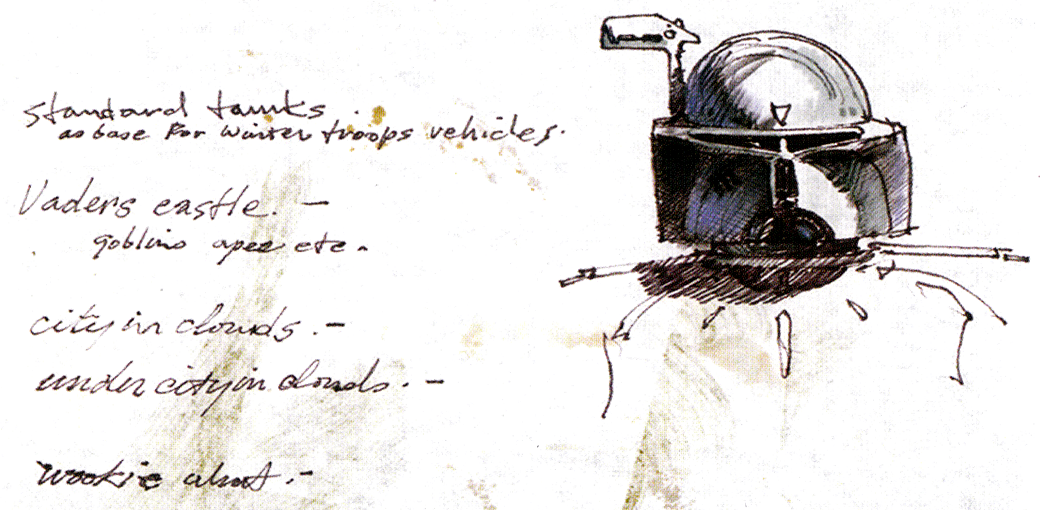 standard tanks.
as base for winter troops vehicles.
Vaders castle. –
goblins apes etc.
city in clouds. –
under city in clouds. –
wookie –